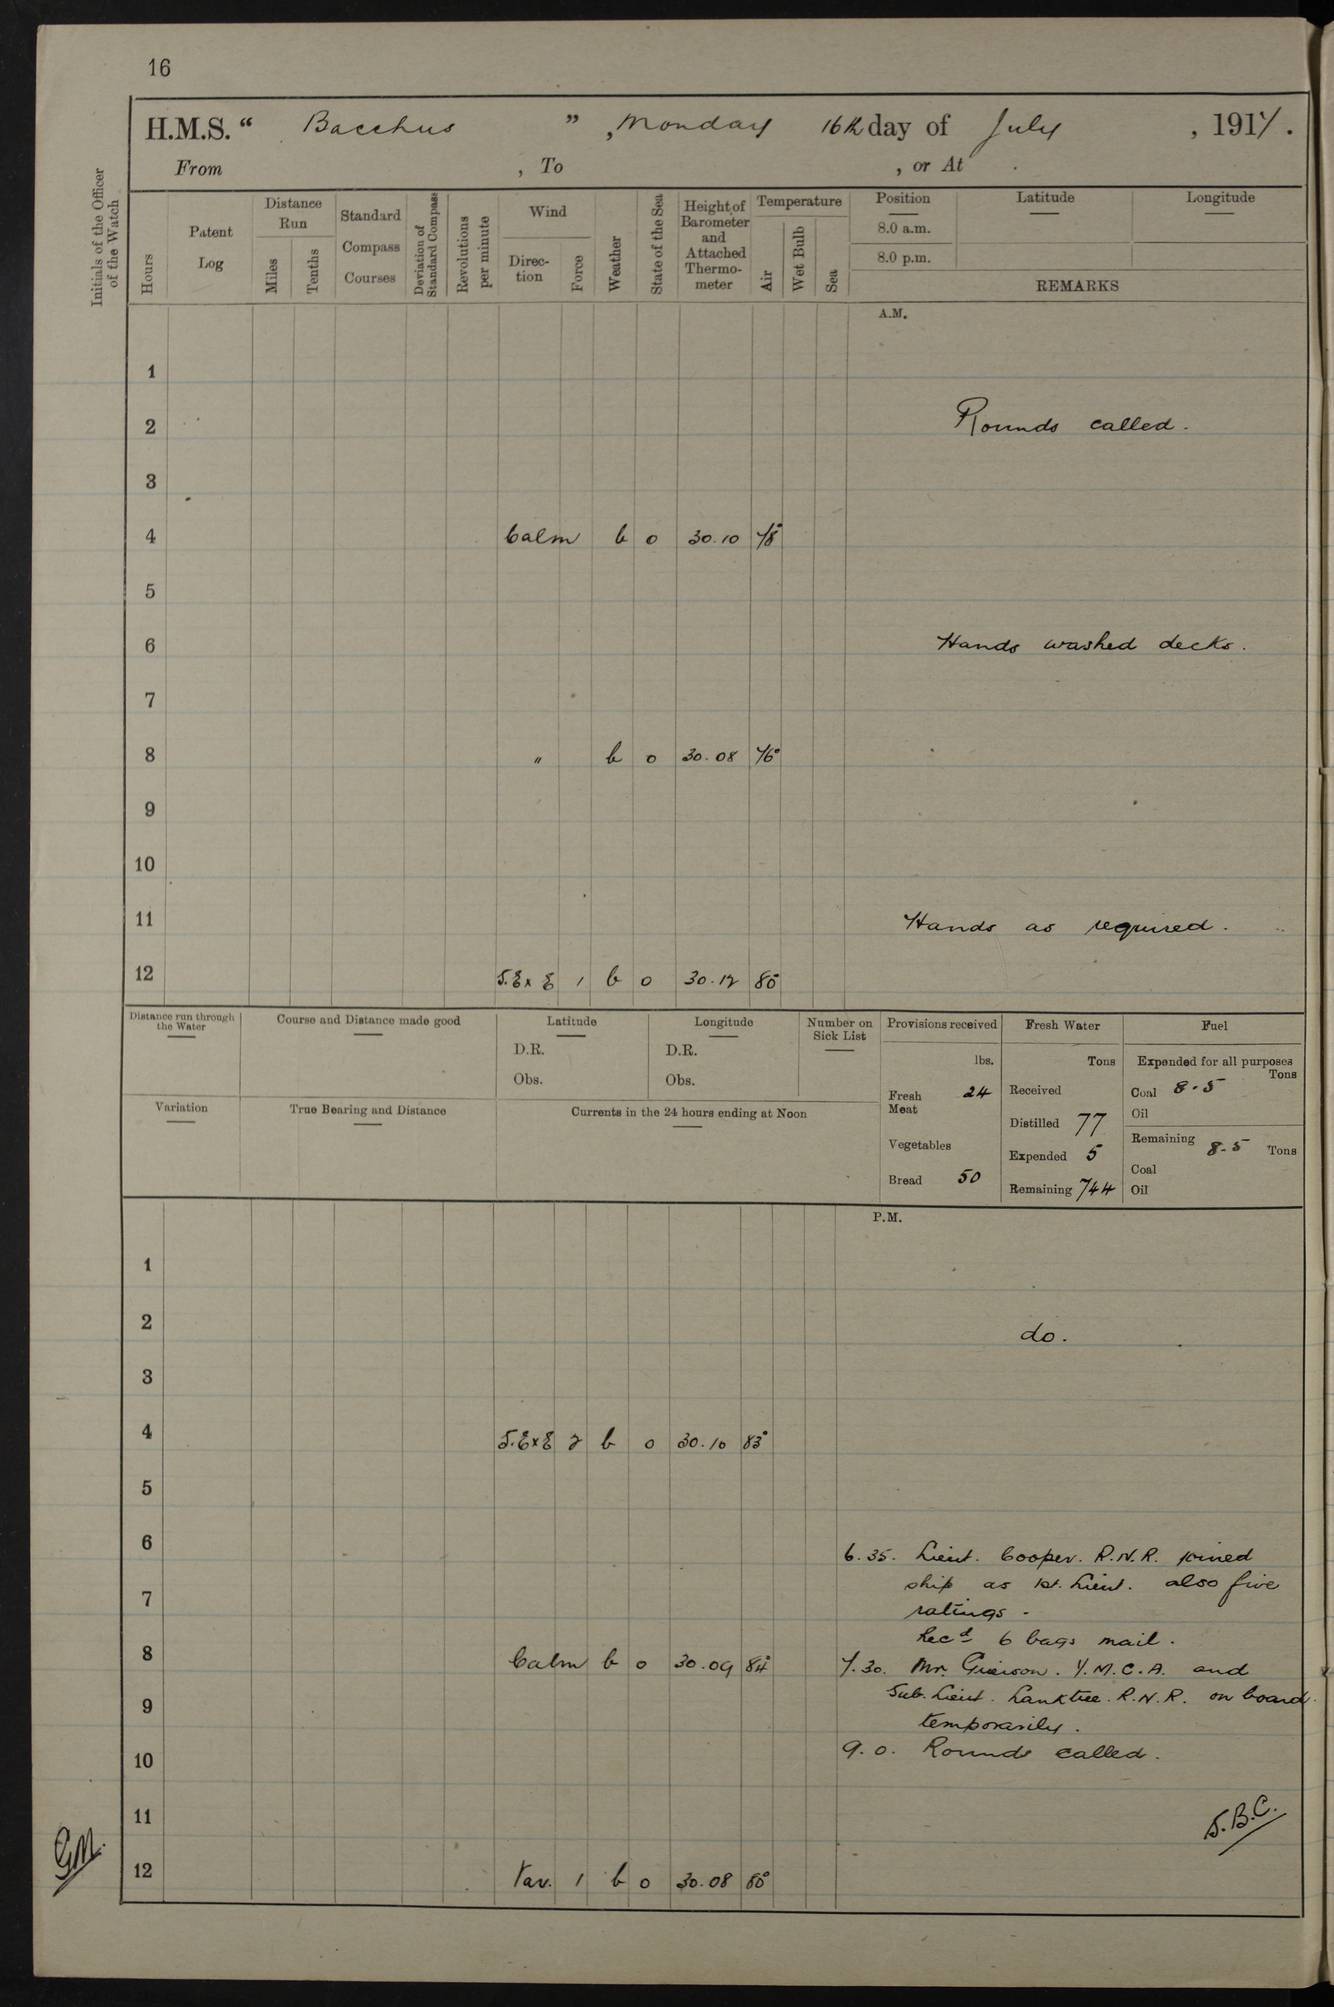 16
H.M.S. “ Bacchus ” , Monday 16th day of July , 1917 .
From , To , or At .
Initials of the Officer of the Watch
Hours
Patent Log
Distance Run
Miles
Tenths
Standard Compass Courses
Deviation of Standard Compass
Revolutions per minute
Wind
Direc-tion
Force
Weather
State of the Sea
Height of Barometer and Attached Thermo-meter
Temperature
Air
Wet Bulb
Sea
Position
8.0 a.m.
8.0 p.m.
Latitude
Longitude
REMARKS
A.M.
1
2 Rounds called.
3
4 Calm b o 30.10 78°
5
6 Hands washed decks.
7
8 " b o 30.08 76°
9
10
11 Hands as required.
12 S.E x E 1 b o 30.12 80°
Distance run through the Water
Course and Distance made good
Latitude
D.R.
Obs.
Longitude
D.R.
Obs.
Number on Sick List
Provisions received
lbs.
Fresh Meat 24
Vegetables
Bread 50
Fresh Water
Tons
Received
Distilled 77
Expended 5
Remaining 744
Fuel
Expended for all purposes
Tons
Coal 8.5
Oil
Remaining 8.5 Tons
Coal
Oil
Variation
True Bearing and Distance
Currents in the 24 hours ending at Noon
P.M.
1
2 do.
3
4 S.E x E 2 b o 30.10 83°
5
6
6.35. Lieut. Cooper. R.N.R. joined
ship as 1st. Lieut. also five
7
ratings.
Recd 6 bags mail.
8 Calm b o 30.09 84° 7.30. Mr. Grierson. Y.M.C.A. and
Sub. Lieut. Lanktree. R.N.R. on board
9
temporarily.
10 9.0. Rounds called.
11
S.B.C.
GM.
12 Var. 1 b o 30.08 80°